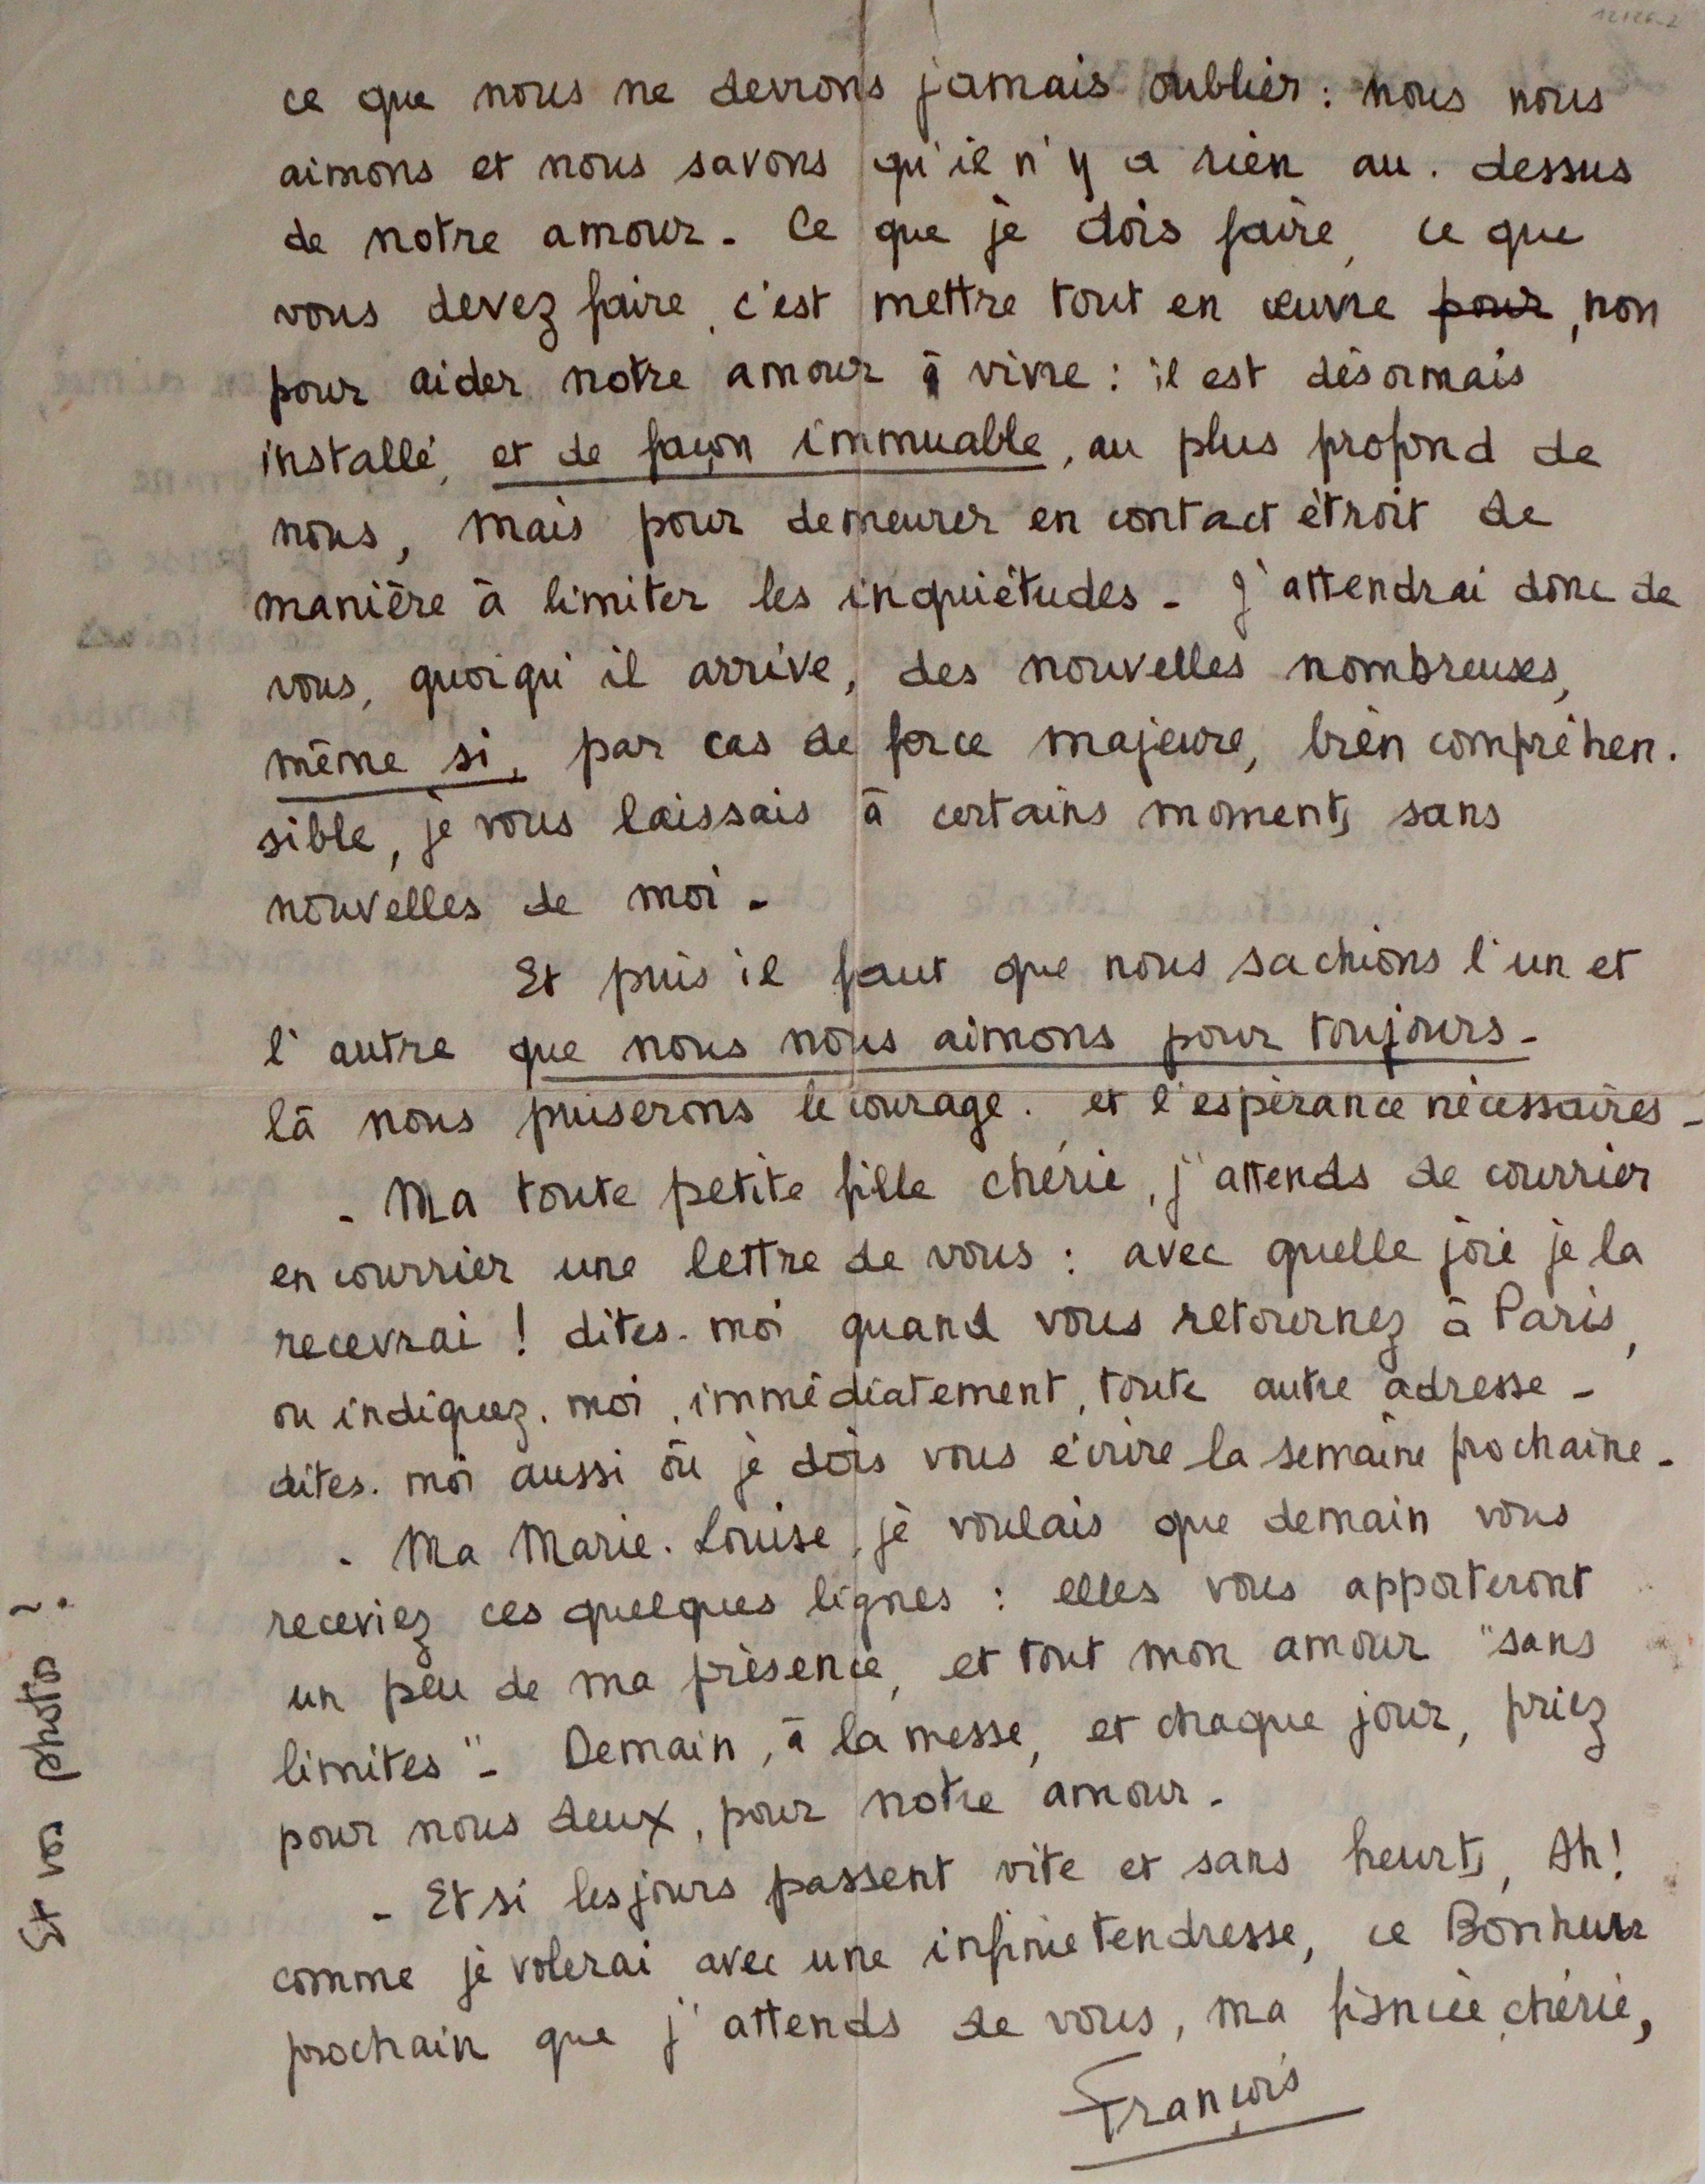 12126-2
ce que nous ne devrons jamais oublier : nous nous
aimons et nous savons qu'il n'y a rien au-dessus
de notre amour - Ce que je dois faire, ce que
vous devez faire, c'est mettre tout en œuvre pour, non
pour aider notre amour à vivre : il est désormais
installé, et de façon immuable, au plus profond de
nous, mais pour demeurer en contact étroit de
manière à limiter les inquiétudes - J'attendrai donc de
vous, quoiqu'il arrive, des nouvelles nombreuses,
même si, par cas de force majeure, bien compréhen-
sible, je vous laissais à certains moments sans
nouvelles de moi -
Et puis il faut que nous sachions l'un et
l'autre que nous nous aimons pour toujours -
là nous puiserons le courage. et l'espérance nécessaires -
- Ma toute petite fille chérie, j'attends de courrier
en courrier une lettre de vous : avec quelle joie je la
recevrai ! dites-moi quand vous retournez à Paris,
ou indiquez-moi, immédiatement, toute autre adresse -
dites-moi aussi où je dois vous écrire la semaine prochaine -
- Ma Marie-Louise, je voulais que demain vous
receviez ces quelques lignes : elles vous apporteront
un peu de ma présence, et tout mon amour "sans
limites" - Demain, à la messe, et chaque jour, priez
pour nous deux, pour notre amour -
- Et si les jours passent vite et sans heurts, Ah !
comme je volerai avec une infinie tendresse, ce Bonheur
prochain que j'attends de vous, ma fiancée chérie,
François
Et vos photos !